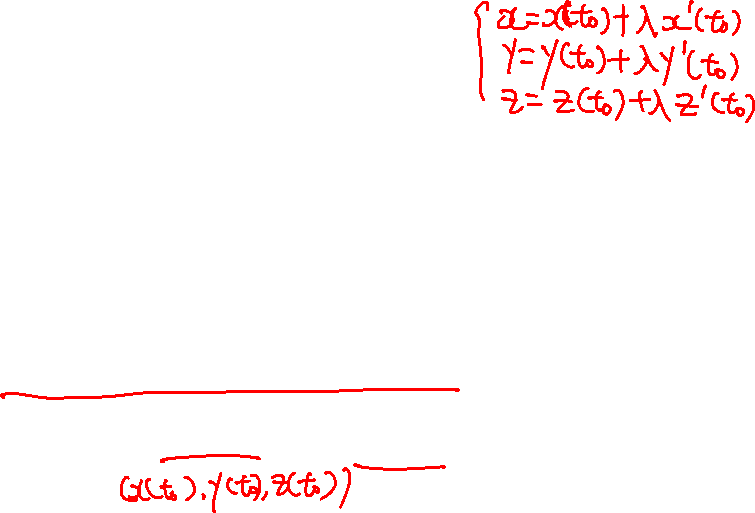 x=x(t₀)+λx'(t₀)
y=y(t₀)+λy'(t₀)
z=z(t₀)+λz'(t₀)
(x(t₀),y(t₀),z(t₀))